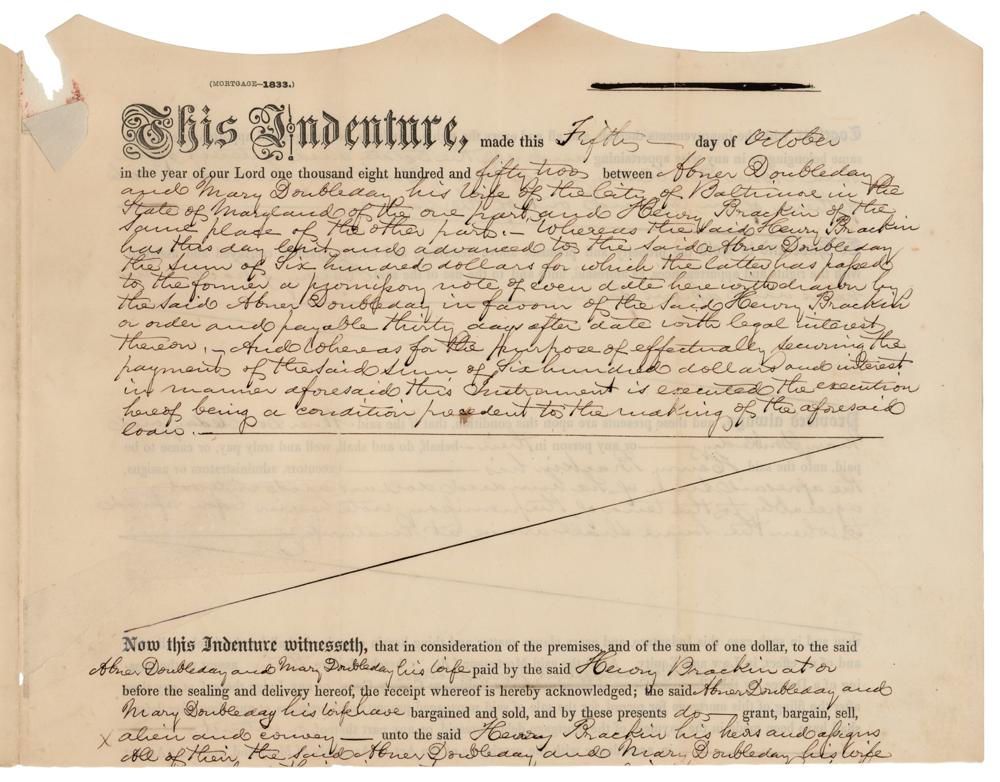 (MORTGAGE—1833.)
This Indenture, made this Fifth day of October
in the year of our Lord one thousand eight hundred and fifty two between Abner Doubleday
and Mary Doubleday his wife of the City of Baltimore in the
State of Maryland of the one part and Henry Brackin of the
same place of the other part. — Whereas the said Henry Brackin
has this day lent and advanced to the said Abner Doubleday
the sum of Six hundred dollars for which the latter has passed
to the former a promissory note of even date herewith drawn by
the said Abner Doubleday in favour of the said Henry Brackin
or order and payable thirty days after date with legal interest
thereon. — And Whereas for the purpose of effectually securing the
payment of the said sum of Six hundred dollars and interest
in manner aforesaid this Instrument is executed the execution
hereof being a condition precedent to the making of the aforesaid
loan. —
Now this Indenture witnesseth, that in consideration of the premises, and of the sum of one dollar, to the said
Abner Doubleday and Mary Doubleday his wife paid by the said Henry Brackin at or
before the sealing and delivery hereof, the receipt whereof is hereby acknowledged; the said Abner Doubleday and
Mary Doubleday his wife have bargained and sold, and by these presents do — grant, bargain, sell,
x alien and convey — unto the said Henry Brackin his heirs and assigns
All of their, the said Abner Doubleday and Mary Doubleday his wife